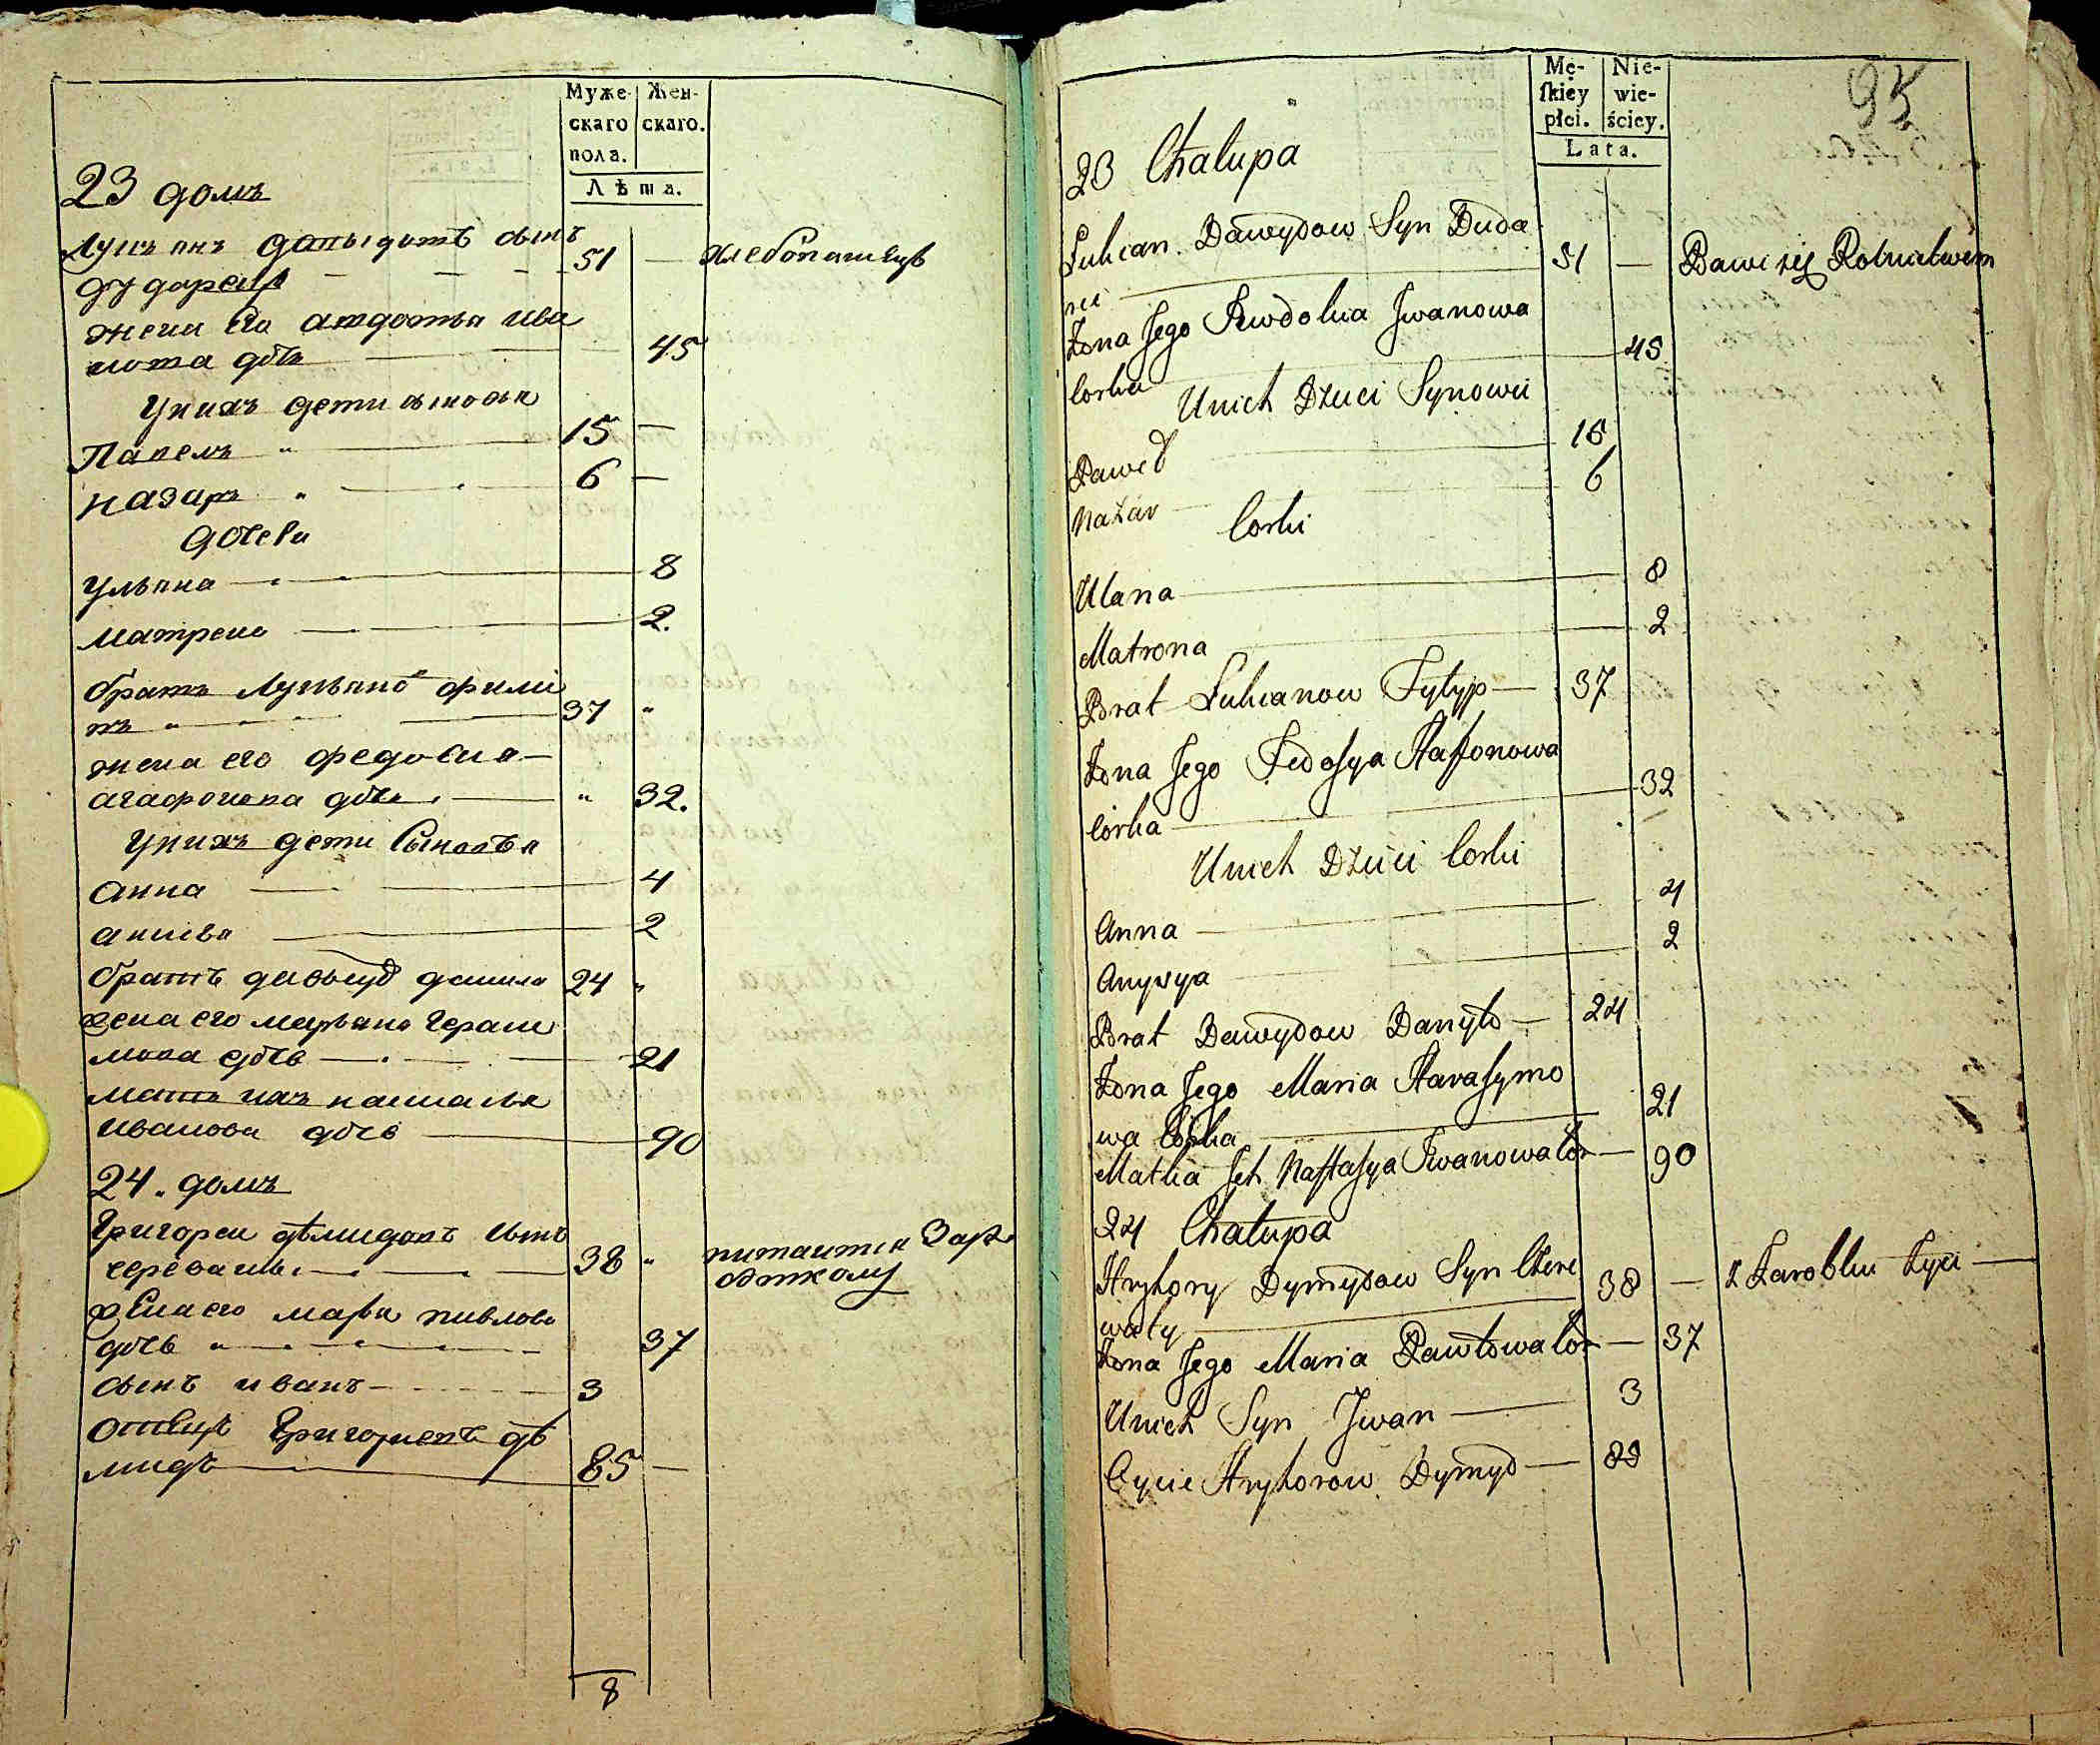 Муже-
скаго
пола.
Жен-
скаго.
Лѣта.
23 домъ
Лукянъ давыдовъ сынъ
дударецъ 51 — хлебопашецъ
жена его авдотья ива
нова дочь 45
У нихъ дети сыновья
Павелъ 15 —
назаръ 6 —
дочери
ульяна 8
матрена 2.
братъ Лукьяновъ фили
пъ 37
жена его федосия
агафонова дочь 32.
У нихъ дети
анна 4
анисья 2
братъ давыдовъ данила 24
жена его марьяна гераси
мова дочь 21
мать ихъ настасья
иванова дочь 90
24. домъ
Григореи демидовъ сынъ
череваты 38 питаится зар
обткомъ
жена его марья павлова
дочь 37
сынъ иванъ 3
отецъ Григориевъ де
мидъ 85 —
8
Mę-
ſkiey
płci.
Nie-
wie-
ściey.
Lata.
95
23 Chalupa
Lukian Dawydow Syn Duda
51 — Bawi się Rolnictwem
Żona Jego Jewdokia Jwanowa
Corka 45
Unich Dzieci Synowii
Paweł 15
Nazar 6
Corki
Ulana 8
Matrona 2
Brat Lukianow Fylyp — 37
Żona Jego Fedosya Haffonowa
Corka 32
Unich Dzieci Corki
Anna 4
Anysya 2
Brat Dawydow Danyło — 24
Żona Jego Maria Harasymo
wa Corka 21
Matka Jch Nastasya Jwanowa Cor — 90
24 Chalupa
Hryhory Dymydow Syn Czere
waty 38 — z Zarobku żyie —
Żona Jego Maria Pawłowa Cor — 37
Unich Syn Jwan 3
Oycie Hryhorow Dymyd — 85